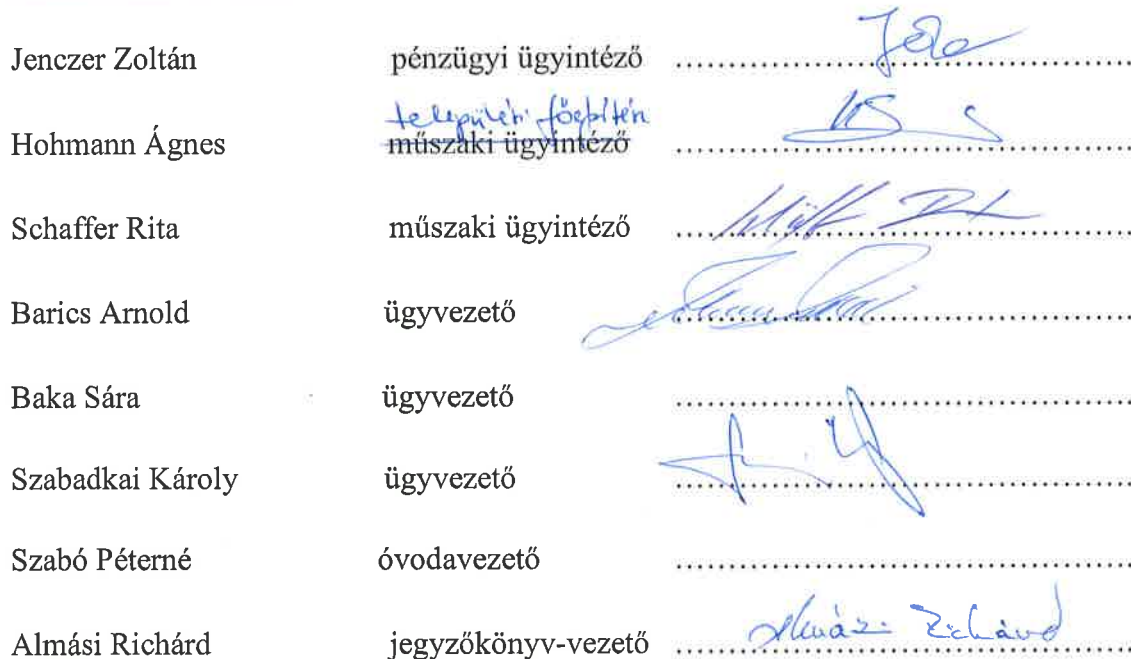 Jenczer Zoltán pénzügyi ügyintéző ....................
települési főépítész
Hohmann Ágnes műszaki ügyintéző ....................
Schaffer Rita műszaki ügyintéző ....................
Barics Arnold ügyvezető ....................
Baka Sára ügyvezető ....................
Szabadkai Károly ügyvezető ....................
Szabó Péterné óvodavezető ....................
Almási Richárd jegyzőkönyv-vezető Almási Richárd